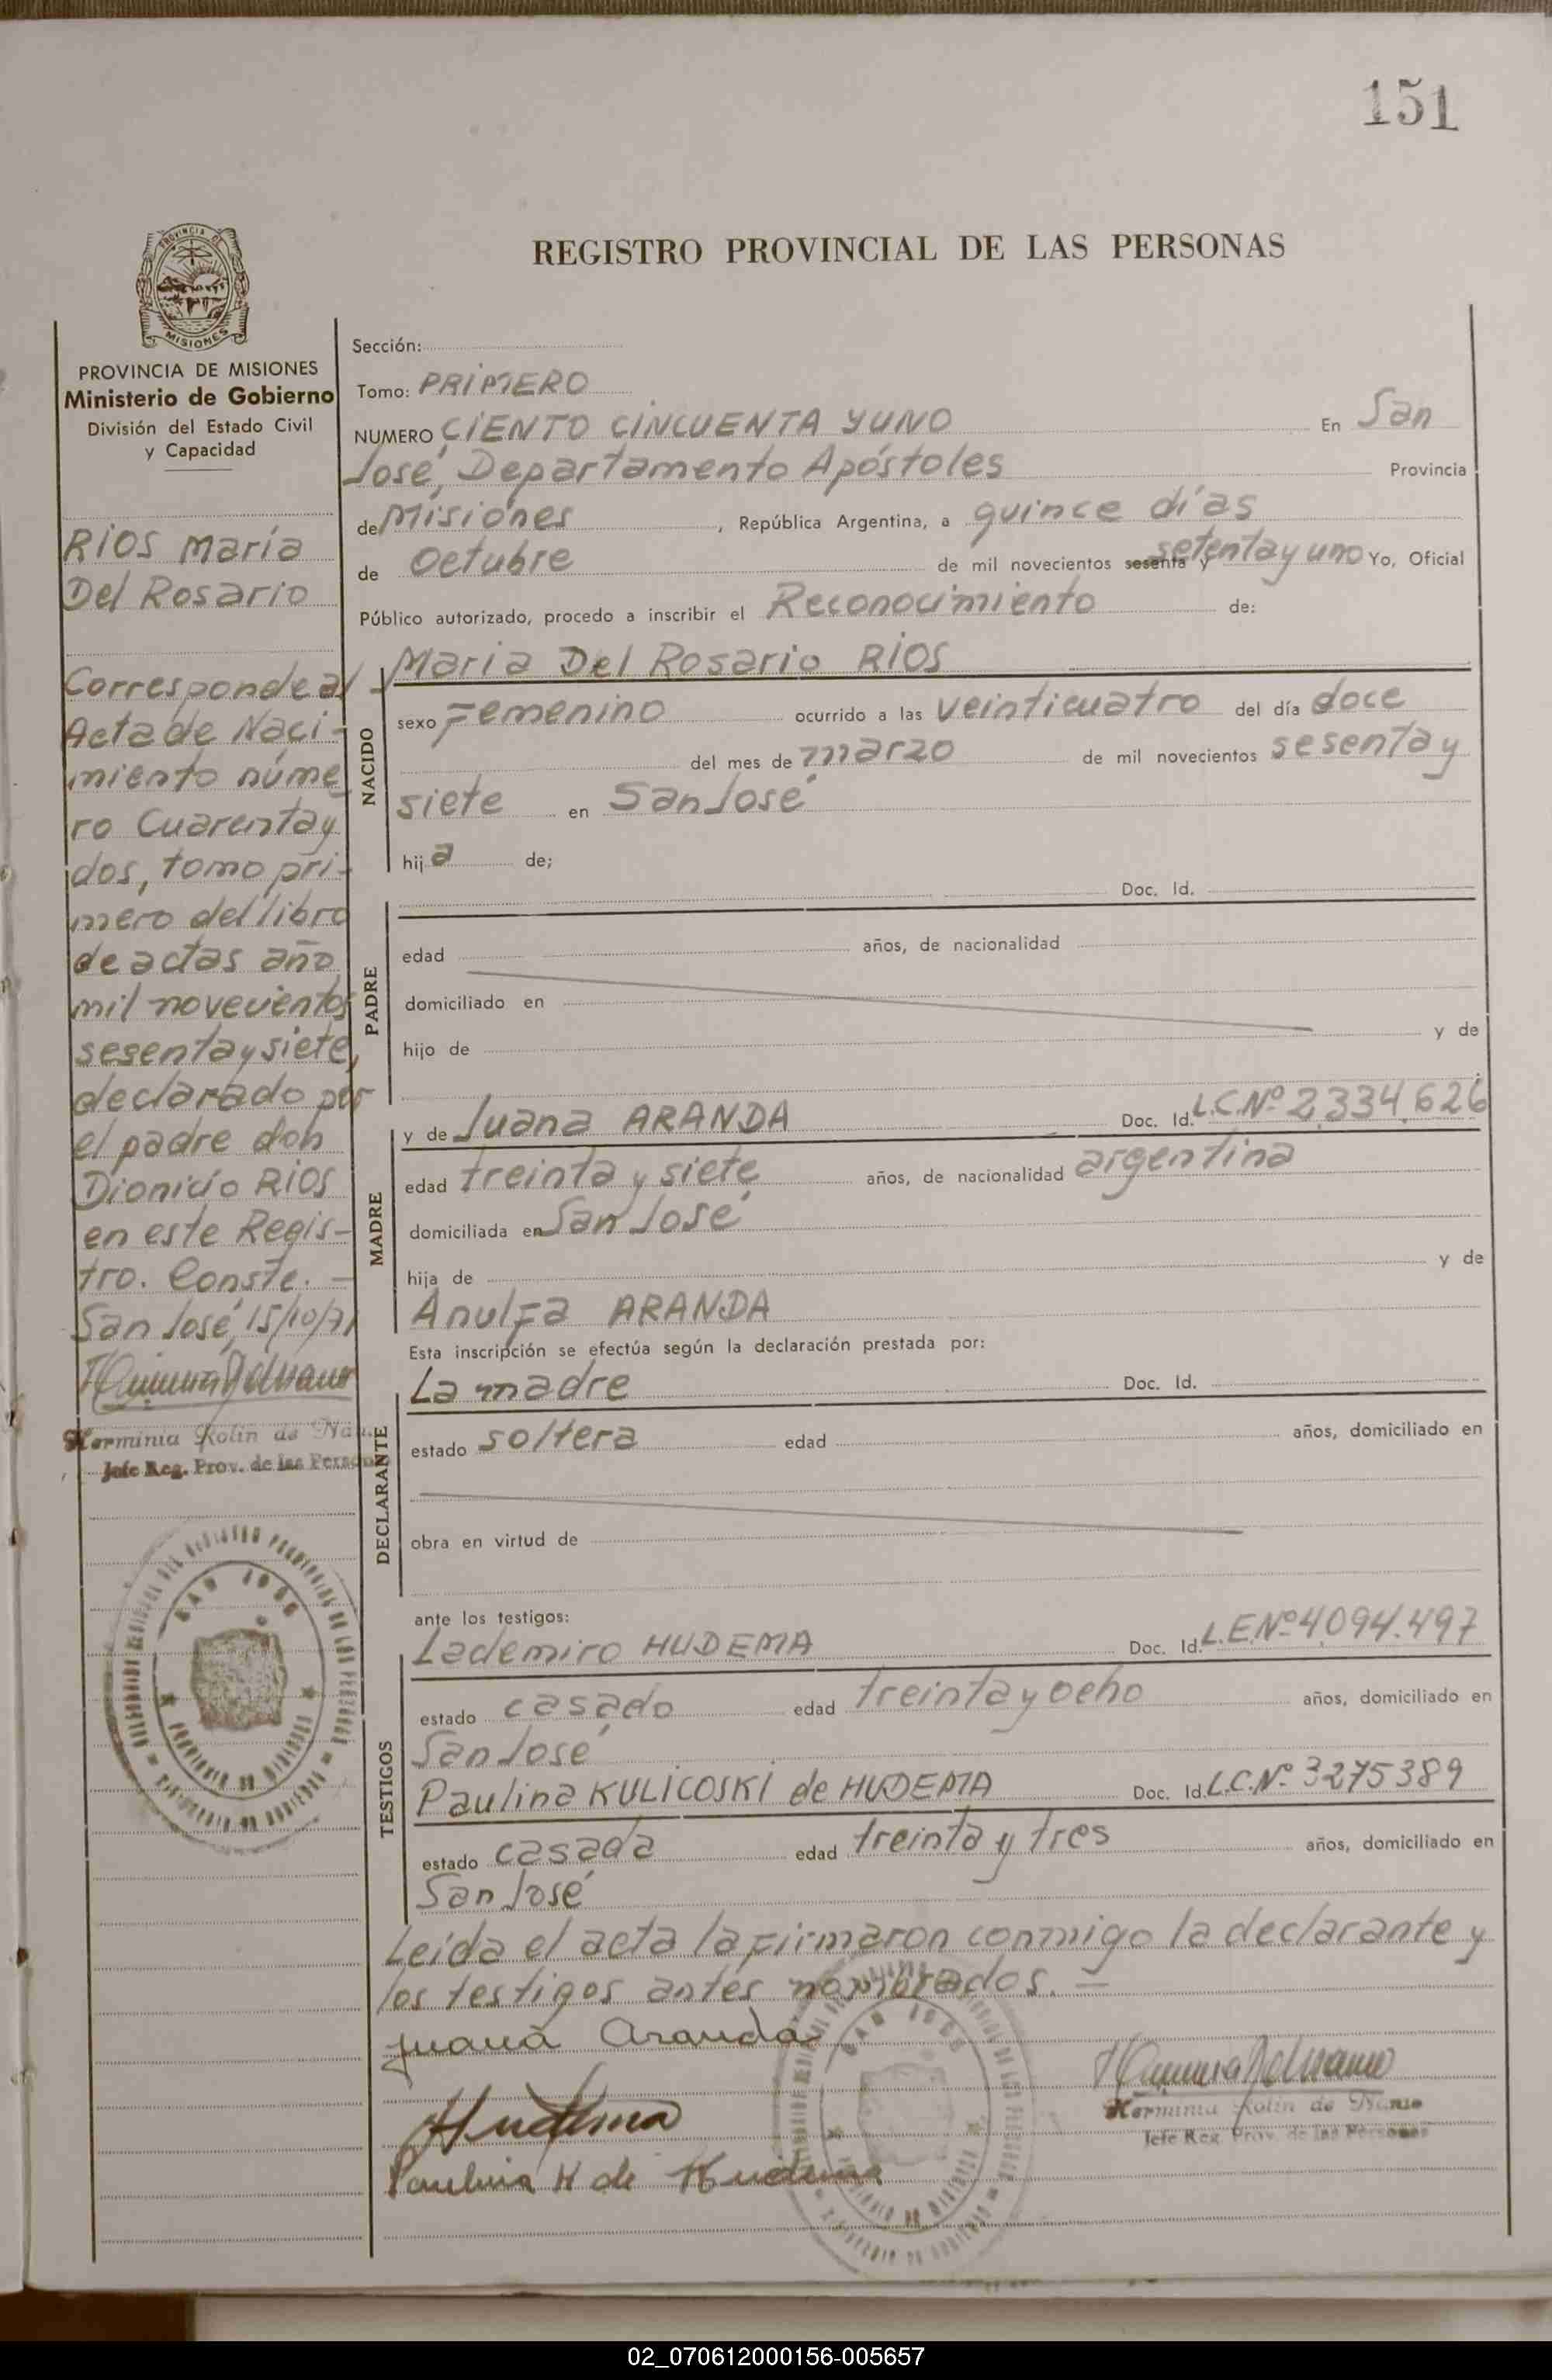 151
REGISTRO PROVINCIAL DE LAS PERSONAS
PROVINCIA DE
MISIONES
PROVINCIA DE MISIONES
Ministerio de Gobierno
División del Estado Civil
y Capacidad
RIOS María
Del Rosario
Corresponde al
Acta de Naci-
miento núme
ro Cuarenta y
dos, tomo pri-
mero del libro
de actas año
mil novecientos
sesenta y siete,
declarado por
el padre don
Dionicio RIOS
en este Regis-
tro. Conste. —
San José, 15/10/71
Herminia Rolin de
Jefe Reg. Prov. de las Personas
SAN JOSE
Sección:
Tomo: PRIMERO
NUMERO CIENTO CINCUENTA Y UNO En San
José, Departamento Apóstoles Provincia
de Misiones, República Argentina, a quince días
de Octubre de mil novecientos sesenta y setenta y uno Yo, Oficial
Público autorizado, procedo a inscribir el Reconocimiento de:
NACIDO
Maria Del Rosario RIOS
sexo Femenino ocurrido a las veinticuatro del día doce
del mes de marzo de mil novecientos sesenta y
siete en San José
hija de;
PADRE
Doc. Id.
edad años, de nacionalidad
domiciliado en
hijo de y de
MADRE
y de Juana ARANDA Doc. Id. L.C.Nº 2.334.626
edad treinta y siete años, de nacionalidad argentina
domiciliada en San José
hija de y de
Anulfa ARANDA
Esta inscripción se efectúa según la declaración prestada por:
DECLARANTE
La madre Doc. Id.
estado soltera edad años, domiciliado en
obra en virtud de
ante los testigos:
TESTIGOS
Lademiro HUDEMA Doc. Id. L.E.Nº 4.094.497
estado casado edad treinta y ocho años, domiciliado en
San José
Paulina KULICOSKI de HUDEMA Doc. Id. L.C.Nº 3275389
estado casada edad treinta y tres años, domiciliado en
San José
Leída el acta la firmaron conmigo la declarante y
los testigos antes nombrados. —
Juana Aranda
Hudema
Paulina K de Hudema
Herminia Rolin de
Jefe Reg. Prov. de las Personas
SAN JOSE
02_070612000156-005657